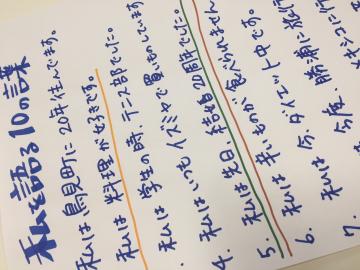 私を語る10の言葉
私は鳥見町に20年住んでます。
私は料理が好きです。
私は学生の時、テニス部でした。
私はいつもイズミヤで買いものしています
4. 私は先日、結婚20周年でした。
5. 私は辛いものが食べられません
6. 私は今、ダイエット中です。
7.